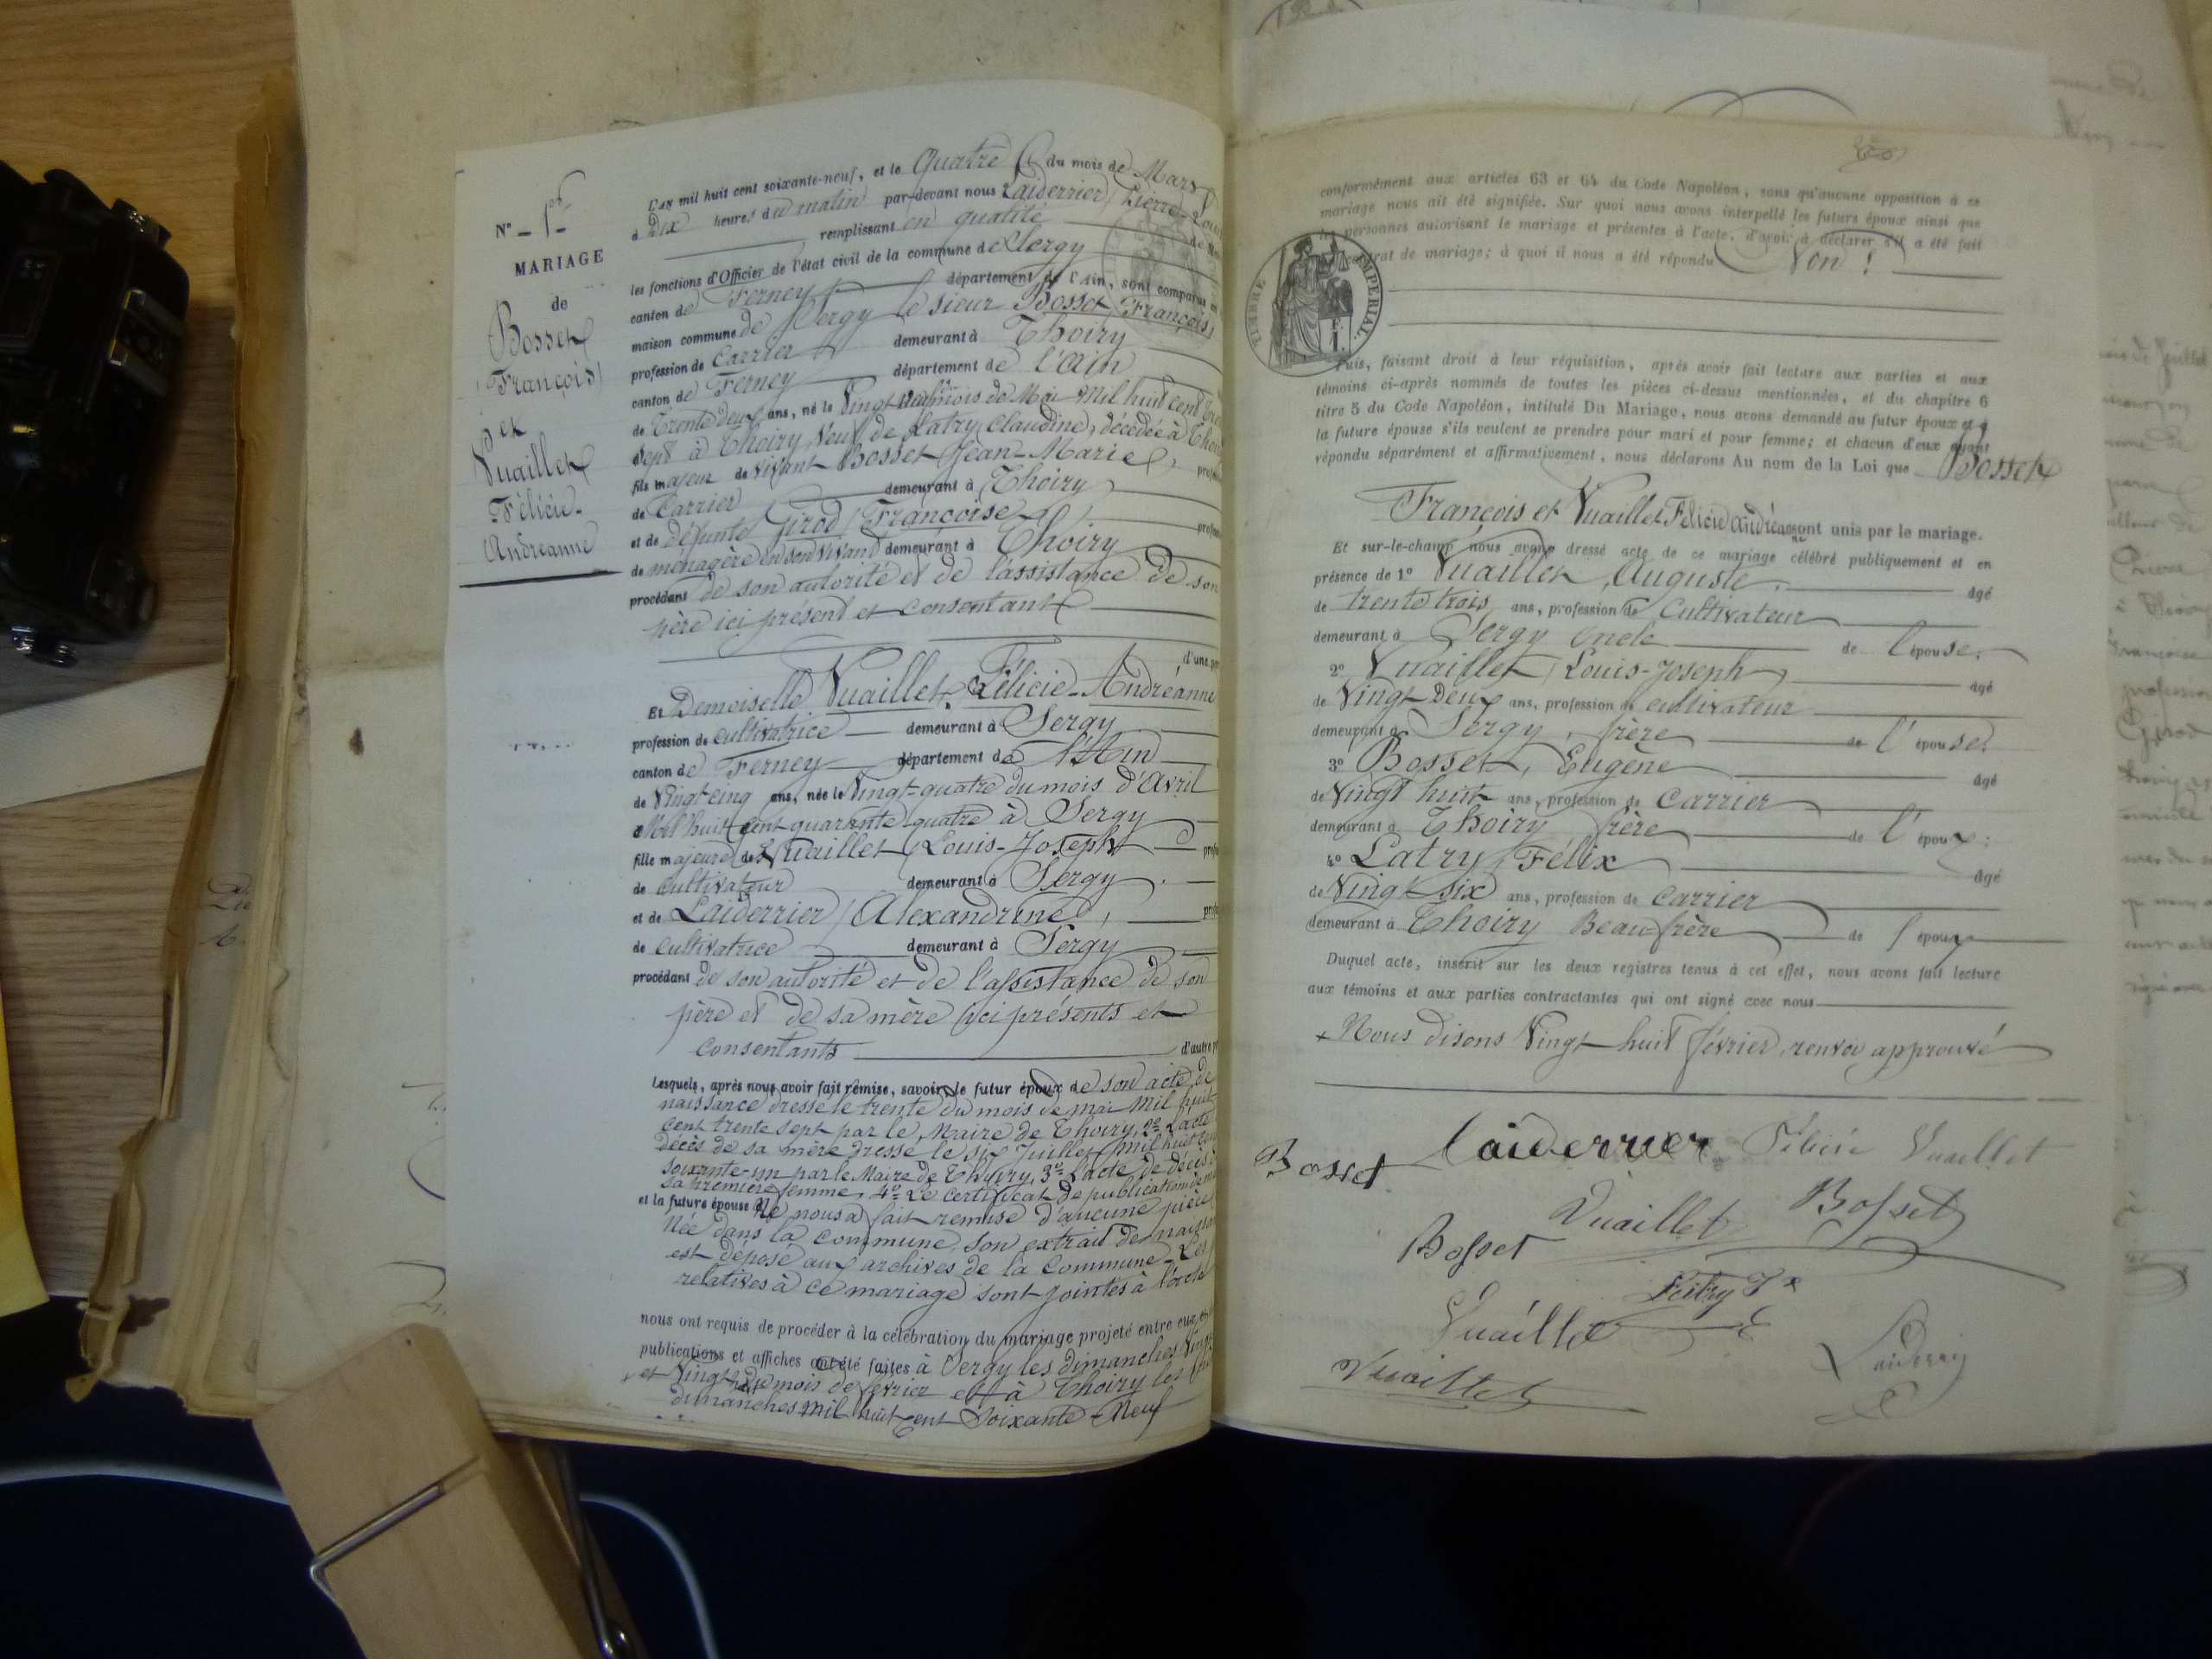 N° 1er
MARIAGE
de
Bosset
François
et
Vuaillet
Félicie-
Andréanne
L'an mil huit cent soixante-neuf, et le Quatre du mois de Mars
à Dix heures du matin par-devant nous Laiderrier, Pierre-Louis
remplissant en qualité de M
les fonctions d'Officier de l'état civil de la commune de Sergy
canton de Ferney département de l'Ain, sont comparus en
maison commune de Sergy le sieur Bosset François
profession de Carrier demeurant à Thoiry
canton de Ferney département de l'Ain
de Trente deux ans, né le Vingt neuf mois de Mai Mil huit cent
sept à Thoiry, Veuf de Latry Claudine, décédée à
fils majeur de vivant Bosset Jean-Marie, prof
de Carrier demeurant à Thoiry
et de défunte Girod Françoise profes
de ménagère en son vivant demeurant à Thoiry
procédant de son autorité et de l'assistance de son
père ici présent et consentant
d'une par
Et Demoiselle Vuaillet, Félicie-Andréanne
profession de cultivatrice demeurant à Sergy
canton de Ferney département de l'Ain
de Vingt-cinq ans, née le Vingt-quatre du mois d'Avril
Mil huit cent quarante quatre à Sergy
fille majeure de Vuaillet, Louis-Joseph profe
de cultivateur demeurant à Sergy
et de Laiderrier, Alexandrine,
de cultivatrice demeurant à Sergy
procédant de son autorité et de l'assistance de son
père et de sa mère ici présents et
consentants d'autre p
Lesquels, après nous avoir fait remise, savoir, le futur époux de son acte de
naissance dressé le trente du mois de mai Mil huit
cent trente sept par le Maire de Thoiry, 2° L'acte
décès de sa mère dressé le six Juillet mil huit cent
soixante-un par le Maire de Thoiry, 3° L'acte de décès
sa première femme, 4° Le certificat de publication
et la future épouse Ne nous a fait remise d'aucune pièce
Née dans la commune, son extrait de naissa
est déposé aux archives de la commune. Les
relatives à ce mariage sont jointes à l'acte
nous ont requis de procéder à la célébration du mariage projeté entre eux, et
publications et affiches ont été faites à Sergy les dimanches Vingt
et Vingt huit mois de février et à Thoiry les
dimanches Mil huit cent Soixante-Neuf
conformément aux articles 63 et 64 du Code Napoléon, sans qu'aucune opposition à ce
mariage nous ait été signifiée. Sur quoi nous avons interpellé les futurs époux ainsi que
les personnes autorisant le mariage et présentes à l'acte, d'avoir à déclarer s'il a été fait
contrat de mariage; à quoi il nous a été répondu Non !
TIMBRE IMPERIAL
Puis, faisant droit à leur réquisition, après avoir fait lecture aux parties et aux
témoins ci-après nommés de toutes les pièces ci-dessus mentionnées, et du chapitre 6
titre 5 du Code Napoléon, intitulé Du Mariage, nous avons demandé au futur époux et à
la future épouse s'ils veulent se prendre pour mari et pour femme; et chacun d'eux ayant
répondu séparément et affirmativement, nous déclarons Au nom de la Loi que Bosset
François et Vuaillet Félicie Andréanne sont unis par le mariage.
Et sur-le-champ nous avons dressé acte de ce mariage célébré publiquement et en
présence de 1° Vuaillet, Auguste, âgé
de trente trois ans, profession de cultivateur
demeurant à Sergy Oncle de l'épouse.
2° Vuaillet, Louis-Joseph âgé
de Vingt-Deux ans, profession de cultivateur
demeurant à Sergy, frère de l'épouse.
3° Bosset, Eugène âgé
de Vingt huit ans, profession de Carrier
demeurant à Thoiry frère de l'époux.
4° Latry, Félix âgé
de Vingt-six ans, profession de carrier
demeurant à Thoiry Beau-frère de l'époux
Duquel acte, inscrit sur les deux registres tenus à cet effet, nous avons fait lecture
aux témoins et aux parties contractantes qui ont signé avec nous
+ Nous disons Vingt-huit février, renvoi approuvé
Bosset Laiderrier Félicie Vuaillet
Bosset Vuaillet Bosset
Vuaillet Latry Fx
Vuaillet